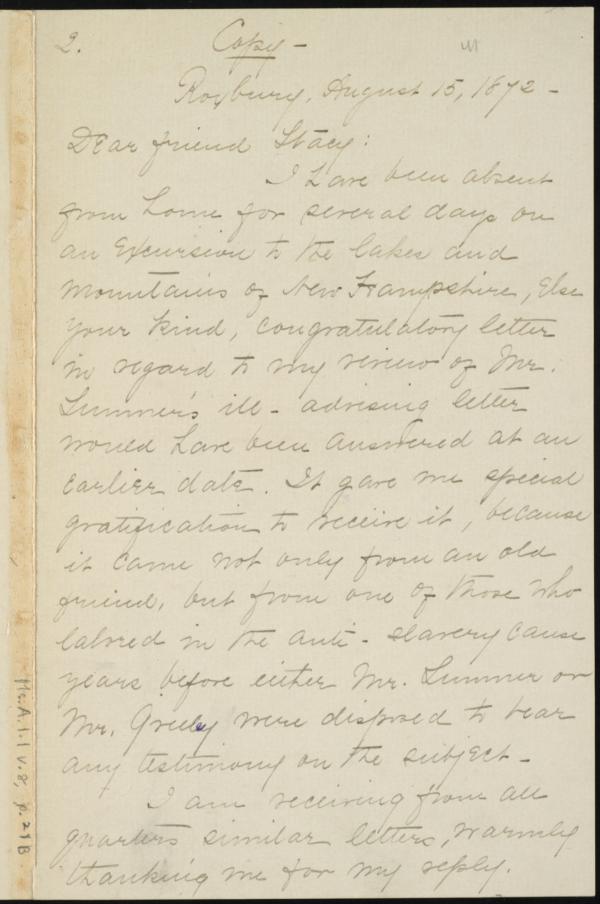 2. Copy -
Roxbury, August 15, 1872 -
Dear friend Stacy:
I have been absent
from home for several days on
an Excursion to the lakes and
Mountains of New Hampshire, Else
your kind, congratulatory letter
in regard to my review of Mr.
Sumner's ill-advising letter
would have been answered at an
Earlier date. It gave me special
gratification to receive it, because
it came not only from an old
friend, but from one of those who
labored in the anti-slavery cause
years before either Mr. Sumner or
Mr. Greeley were disposed to bear
any testimony on the subject -
I am receiving from all
quarters similar letters, warmly
thanking me for my reply.
Ms.A.1.1 v.8, p.21B